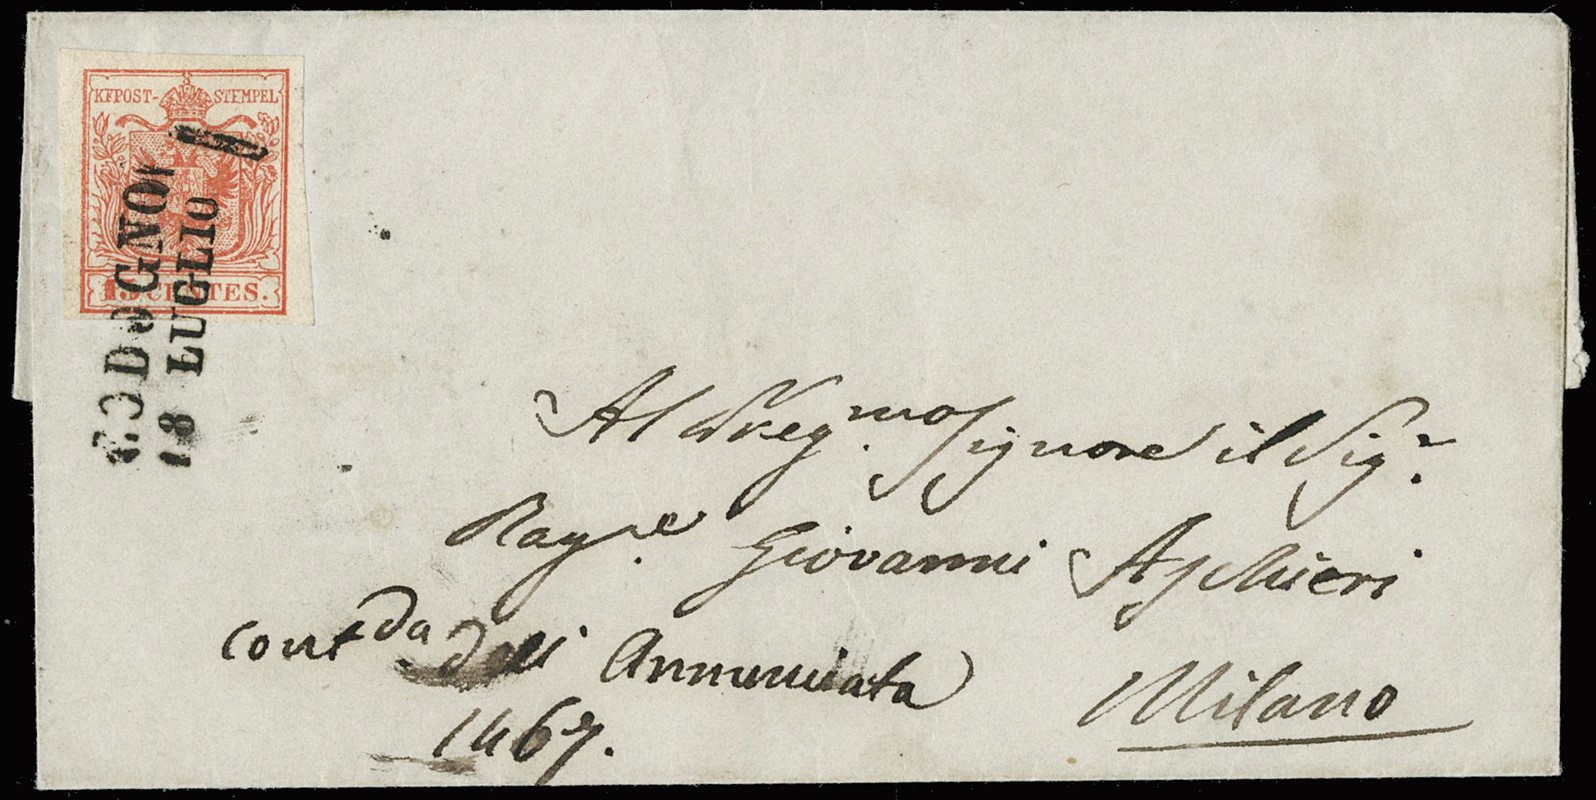 KKPOST-STEMPEL
15 CENTES.
CODOGNO
18 LUGLIO
Al Preg.mo Signore il Sig.r
Rag.re Giovanni Aschieri
cont.da dell Annunciata
1467.
Milano